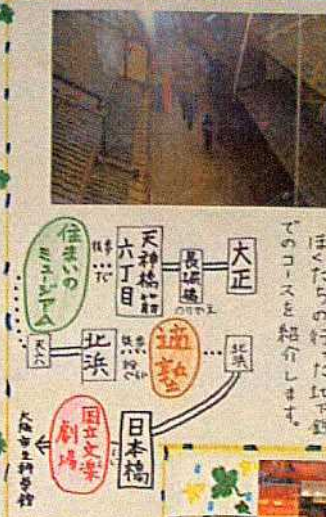 ぼくたちの行った地下鉄
でのコースを紹介します。
大正
長堀橋
のりかえ
天神橋筋
六丁目
徒歩
すぐ
住まいの
ミュージアム
天六
北浜
徒歩
適塾
北浜
日本橋
国立文楽
劇場
大阪市立科学館